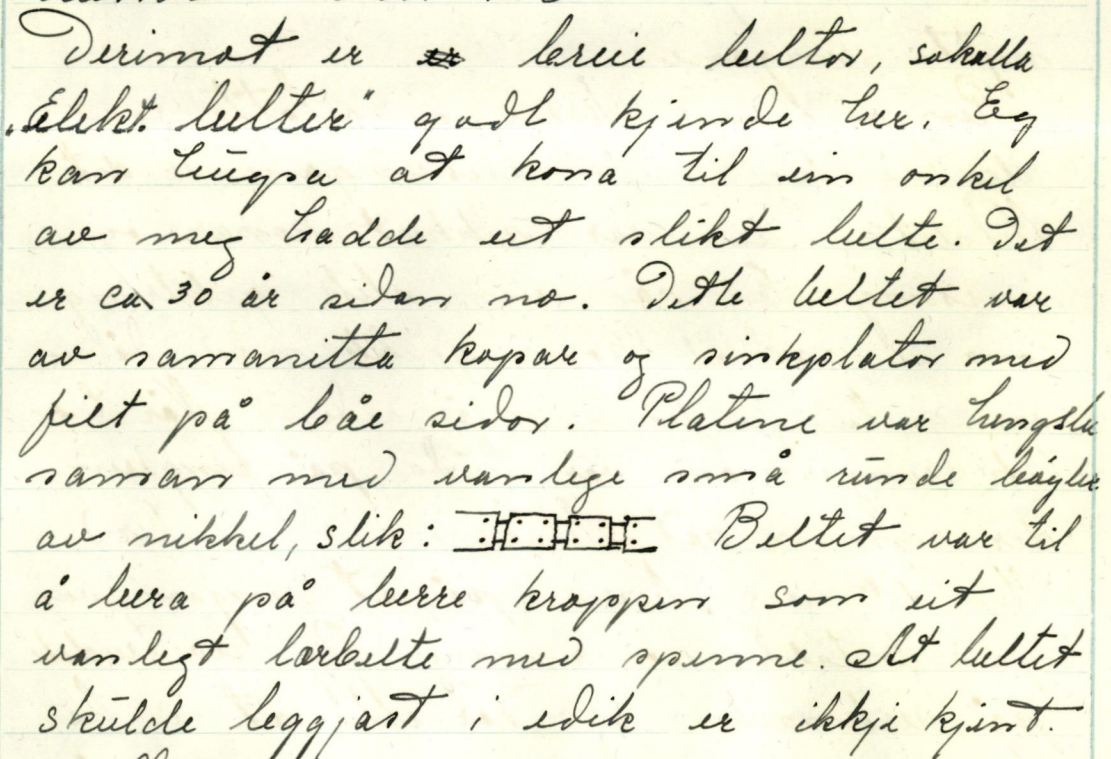 Derimot er er breie beltor, sokalla
„Elekt. belter" godt kjende her. Eg
kan hugsa at kona til ein onkel
av meg hadde eit slikt belte. Det
er ca. 30 år sidan no. Dette beltet var
av samanitta kopar og sinkplator med
filt på båe sidor. Platene var hengsla
saman med vanlege små runde bøyler
av nikkel, slik: Beltet var til
å bera på berre kroppen som eit
vanlegt lærbelte med spenne. At beltet
skulde leggjast i edik er ikkje kjent.